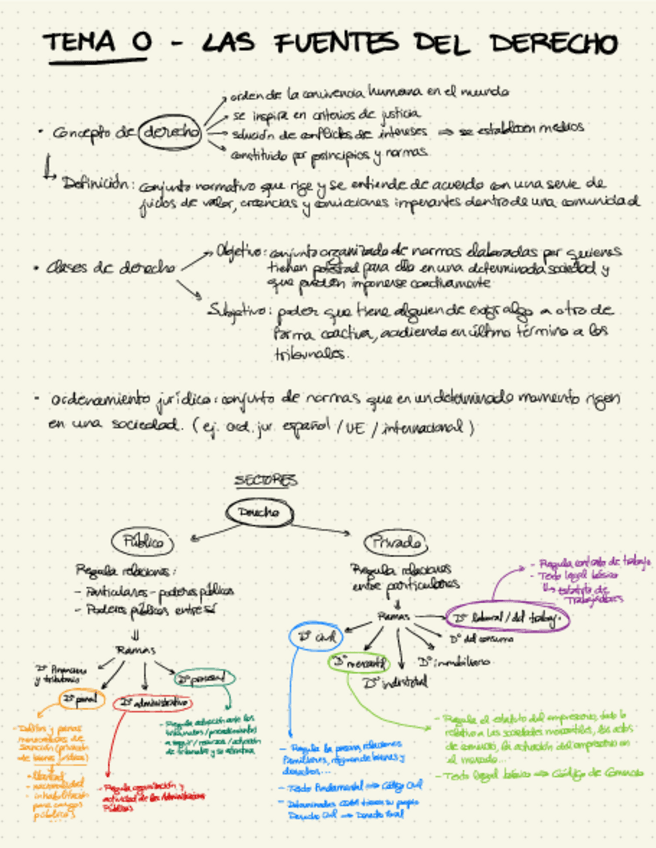 TEMA 0 - LAS FUENTES DEL DERECHO
orden de la convivencia humana en el mundo
se inspira en criterios de justicia
• Concepto de derecho
solución de conflictos de intereses ⇒ se establecen medios
constituido por principios y normas
Definición: conjunto normativo que rige y se entiende de acuerdo con una serie de
juicios de valor, creencias y convicciones imperantes dentro de una comunidad
• Clases de derecho
Objetivo: conjunto organizado de normas elaboradas por quienes
tienen potestad para ello en una determinada sociedad y
que pueden imponerse coactivamente
Subjetivo: poder que tiene alguien de exigir algo a otro de
forma coactiva, acudiendo en último término a los
tribunales.
• ordenamiento jurídico: conjunto de normas que en un determinado momento rigen
en una sociedad. (ej. ord. jur. español / UE / internacional)
SECTORES
Derecho
Público
Regula relaciones:
- Particulares - poderes públicos
- Poderes públicos entre sí
Ramas
Dº Financiero
y tributario
Dº penal
Dº administrativo
Dº procesal
- Delitos y penas
privación
de bienes
- libertad
inhabilitación
para cargos
públicos
- Regula organización y
actividad de las Administraciones
Públicas
- Regula actuación ante los
tribunales / procedimientos
a seguir / recursos / actuación
de tribunales y su
Privado
Regula relaciones
entre particulares
Ramas
Dº laboral / del trabajo
- Regula contrato de trabajo
- Texto legal básico
↳ Estatuto de
Trabajadores
Dº del consumo
Dº inmobiliario
Dº industrial
Dº mercantil
Dº civil
- Regula la persona, relaciones
familiares, régimen de bienes y
derechos...
- Texto fundamental ⇒ Código Civil
- Determinadas CCAA tienen su propio
Derecho Civil → Derecho Foral
- Regula el estatuto del empresario, todo lo
relativo a las sociedades mercantiles, los actos
de comercio, la actuación del empresario en
el mercado...
- Texto legal básico ⇒ Código de Comercio